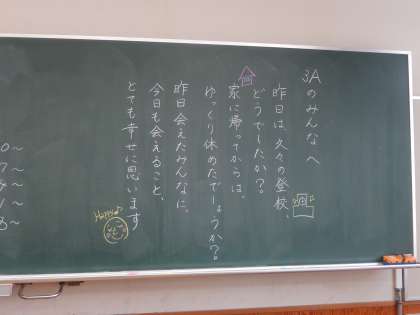 3Aのみんなへ
昨日は、久々の登校、
どうでしたか?
家に帰ってからは、
ゆっくり休めたでしょうか?
昨日会えたみんなに、
今日も会えること、
とても幸せに思います
Happy♪